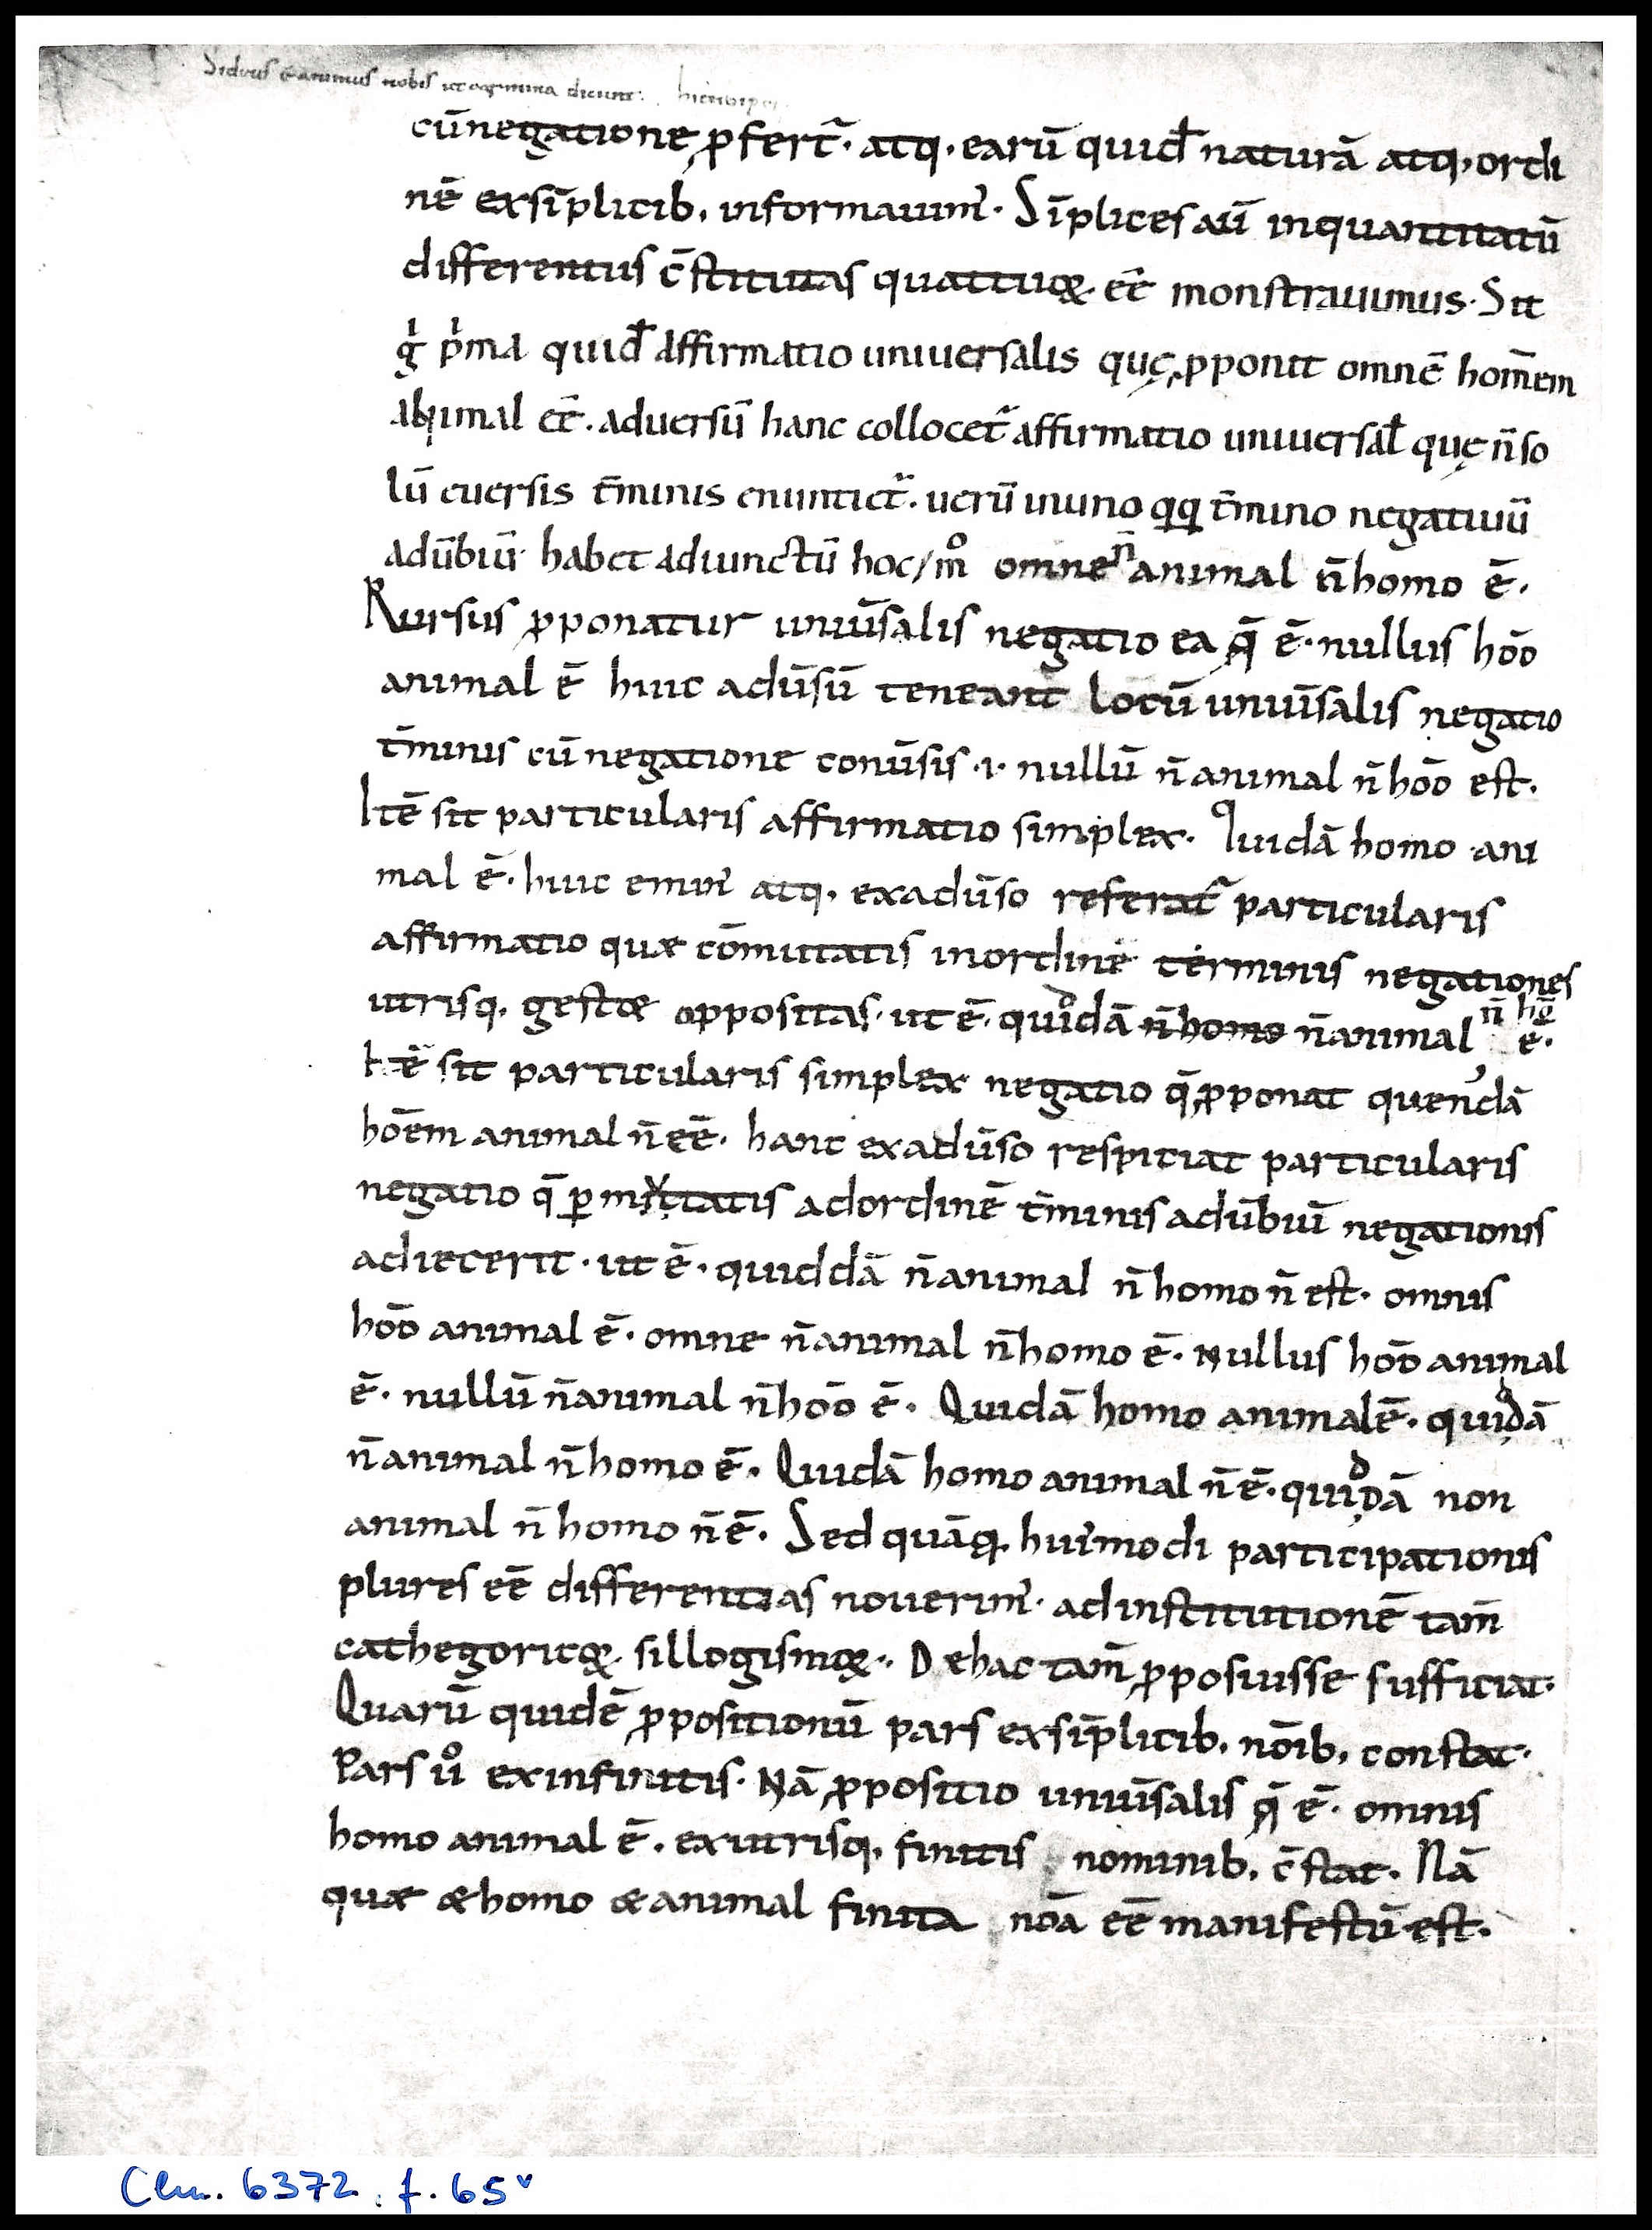 Si deus ē animus nobis ut carmina dicunt:
cū negatione ꝓfert᷑. atq; earū quid̄ naturā atq; ordi
nē exsīplicib; informauim᷒. Sīplices aū inquantitatū
differentiis c̄stitutas quattuoꝝ eē monstrauimus. Sit
gͥ pͥma quid̄ affirmatio uniuersalis quę ꝓponit omnē hom̄em
animal eē. aduersū hanc collocet᷑ affirmatio uniuersal̄ quę n̄ so
lū euersis t̄minis enuntiet᷑. uerū inuno qͦqͦ t̄mino negatiuū
adūbiū habet adiunctū hoc / mͦ omne n̄ animal n̄ homo ē.
Rursus ꝓponatur uniūsalis negatio ea q̄ ē. nullus hōo
animal ē huic adūsū teneant locū uniūsalis negatio
t̄minis cū negatione conūsis .i. nullū n̄ animal n̄ hōo est.
Itē sit particularis affirmatio simplex. Quidā homo ani
mal ē. huic emin᷒ atq; exadūso referat᷑ particularis
affirmatio quæ cōmutatis inordinē terminis negationes
utrisq; gestæ oppositas. ut ē. quiddā n̄ homo n̄ animal n̄ hō ē.
Itē sit particularis simplex negatio q̄ ꝓponat quendā
hōem animal n̄ eē. hanc exadūso respiciat particularis
negatio q̄ ꝑmutatis adordinē t̄minis adūbiū negationis
adiecerit. ut ē. quiddā n̄ animal n̄ homo n̄ est. omnis
hōo animal ē. omne n̄ animal n̄ homo ē. Nullus hōo animal
ē. nullū n̄ animal n̄ hōo ē. Quidā homo animal ē. quiddā
n̄ animal n̄ homo ē. Quidā homo animal n̄ ē. quiddā non
animal n̄ homo n̄ ē. Sed quāq; hui᷒modi participationis
plures eē differentias nouerim᷒. ad institutionē tam̄
cathegoricoꝝ sillogismoꝝ. De hac tam̄ ꝓposiusse sufficiat.
Quarū quidē ꝓpositionū pars exsīplicib; nōib; constat.
Pars ūͦ exinfinitis. Nā ꝓpositio uniūsalis q̄ ē. omnis
homo animal ē. exutrisq; finitis nominib; c̄stat. Nā
quæ & homo & animal finita nōa eē manifestū est.
Clm. 6372. f. 65v